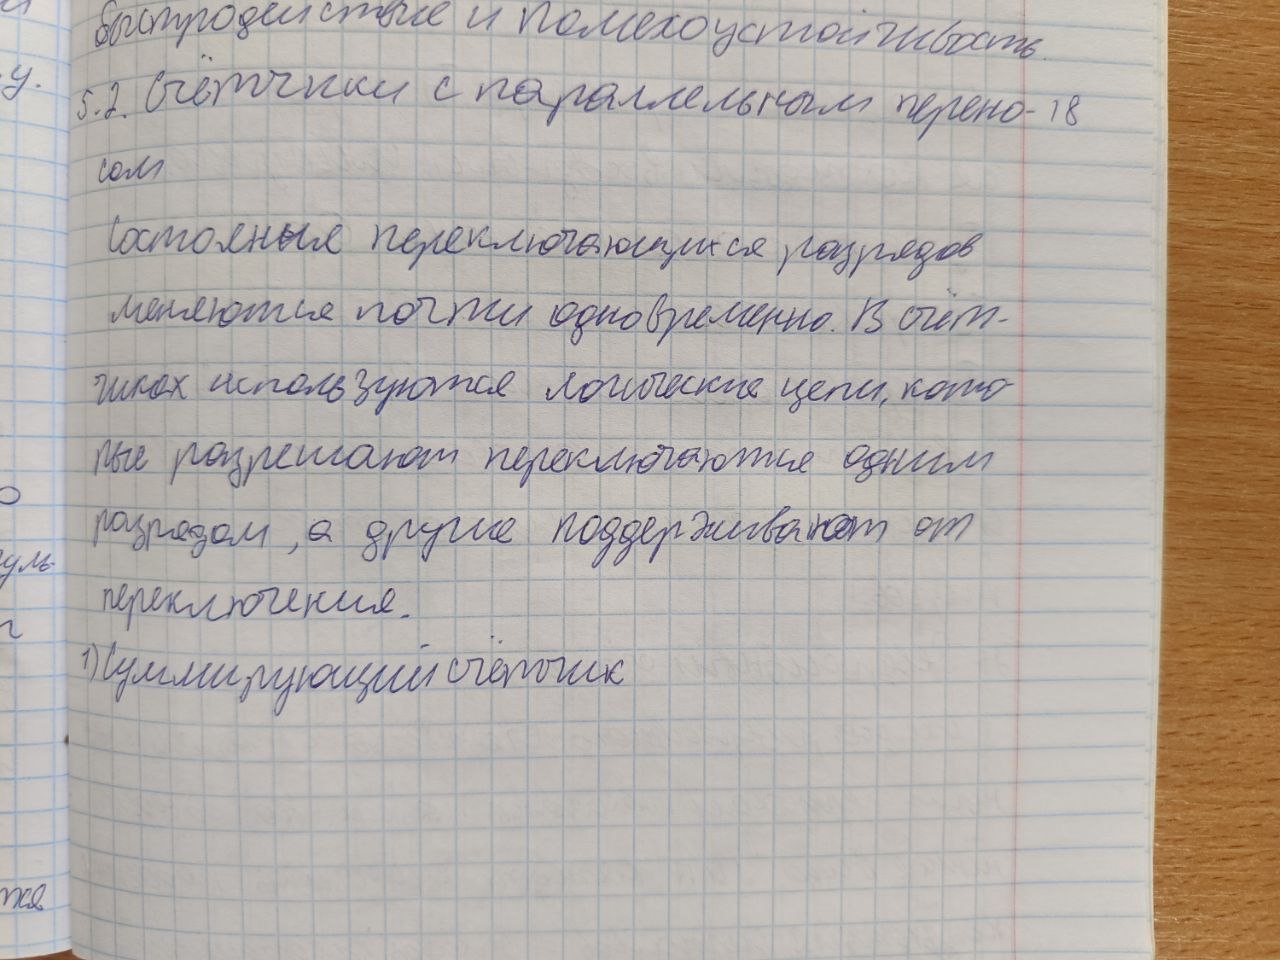 быстродействие и помехоустойчивость.
5.2. Счётчики с параллельным перено- 18
сом
Состояныя переключающихся разрядов
меняются почти одновременно. В счёт-
чиках используются логические цепи, кото
рые разрешают переключаются одним
разрядом, а другие поддерживают от
переключения.
1) Суммирующий счётчик
у.
уль-
тся